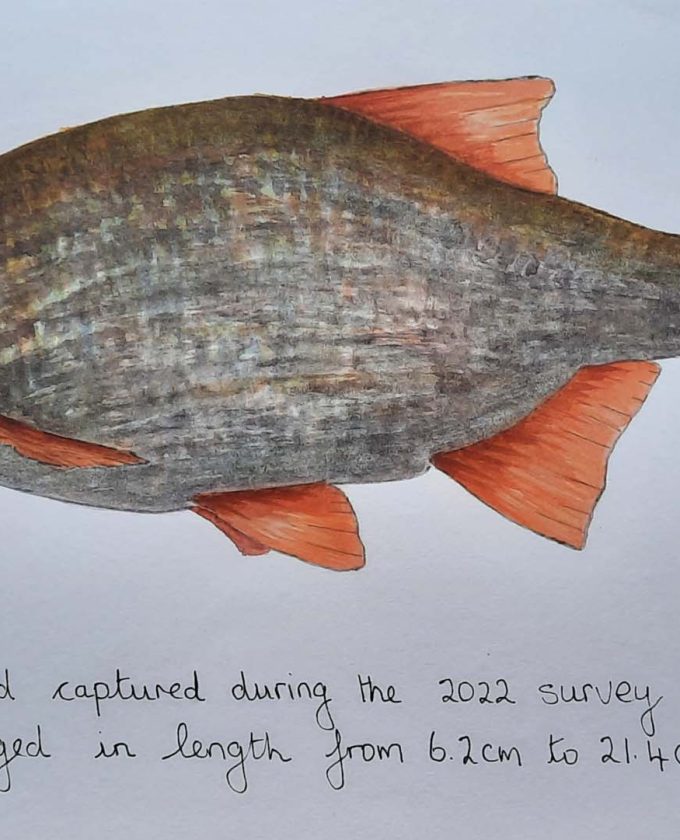 d captured during the 2022 survey
ged in length from 6.2cm to 21.4c